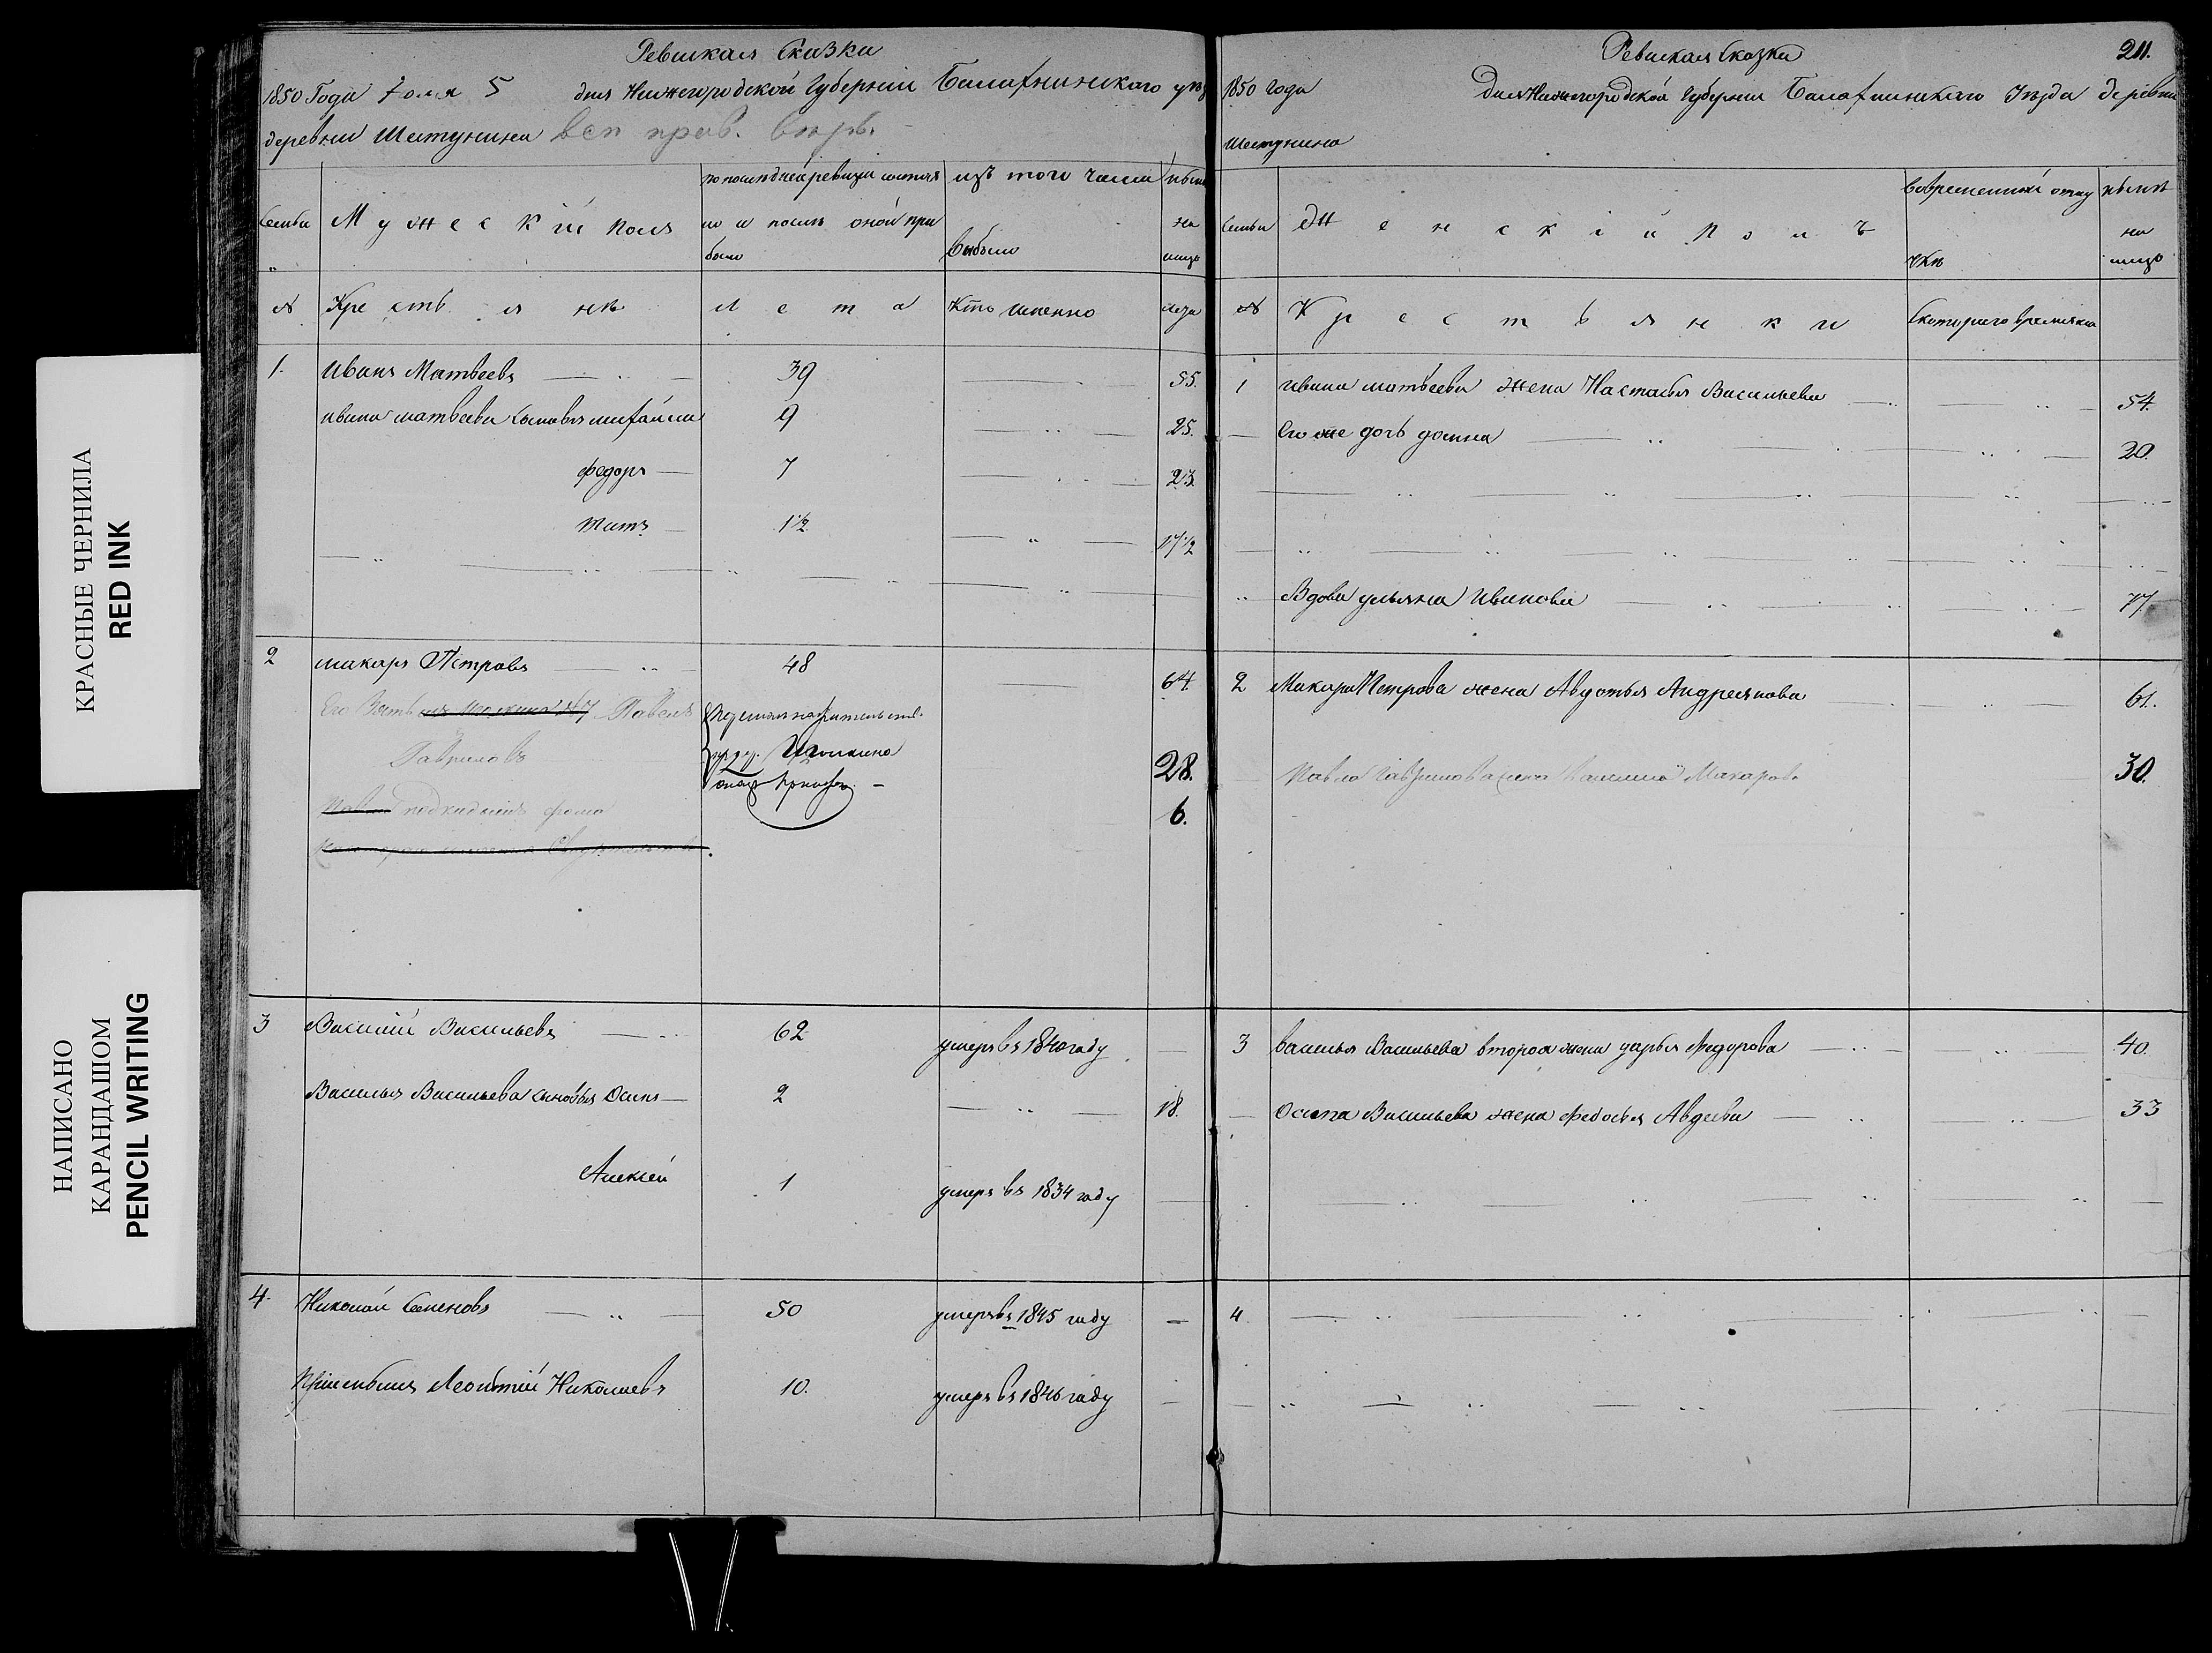 КРАСНЫЕ ЧЕРНИЛА
RED INK
НАПИСАНО
КАРАНДАШОМ
PENCIL WRITING
Ревизкая Сказка
1850 Года Июля 5 дня Нижегородской Губернии Балахнинского уѣз
деревни Шатунина всѣ прав.
Семьи
Мужескій полъ
по последней ревизи состоя
ло и послѣ оной при
было
изъ того числа
выбыло
нынѣ
на
лицо
№
Крестьянѣ
Лета
Кто именно
лета
1. Иванъ Матвеевъ 39 55.
ивана матвеева сыновья михайла 9 25.
федоръ 7 23.
титъ 1 1/2 17 1/2
2 макаръ Петровъ 48 64.
Его Зять Павелъ
Гавриловъ 28.
подкидышъ фома 6.
3 Василій Васильевъ 62 умеръ въ 1840 году
Василья Васильева сыновья Осипъ 2 18.
Алексѣй 1 умеръ въ 1834 году
4. Николай Семеновъ 50 умеръ въ 1845 году
Леонтий Николаевъ 10. умеръ въ 1846 году
Ревизкая Сказка 211.
1850 года дня Нижегородской Губернии Балахнинскаго Уѣзда деревни
шатунина
Семьи
Женскій полъ
вовременной отлу
чкѣ
нынѣ
на
лицо
№
Крестьянки
Скоторого времяни
1 ивана матвеева жена Настасья Васильева 54.
Его же дочь домна 20.
Вдова ульяна Иванова 77.
2 Макара Петрова жена Авдотья Андреянова 61.
Павла Гаврилова жена Макарова 30.
3 василья Васильева вторая жена дарья Федорова 40.
Осипа Васильева жена Федосья Авдеева 33
4